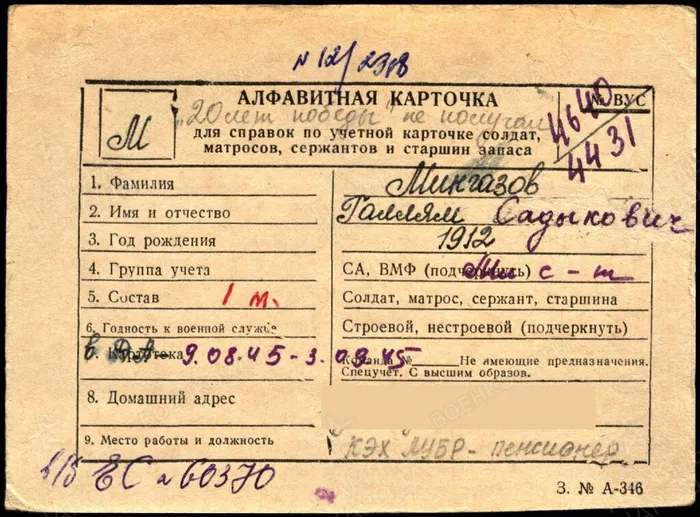 N 12/2378
АЛФАВИТНАЯ КАРТОЧКА
№ ВУС
4640
4431
М
„20 лет победы" не получал
для справок по учетной карточке солдат,
матросов, сержантов и старшин запаса
1. Фамилия Мингазов
2. Имя и отчество Галлям Садыкович
3. Год рождения 1912
4. Группа учета СА, ВМФ (подчеркнуть) с-т
5. Состав 1 м. Солдат, матрос, сержант, старшина
6. Годность к военной службе Строевой, нестроевой (подчеркнуть)
Картотека 9.08.45-3.09.45 Команда № Не имеющие предназначения.
Спецучет. С высшим образов.
8. Домашний адрес
9. Место работы и должность "КЭХ" ЛУБР - пенсионер
в/б ЕС № 60370
З. № А-346